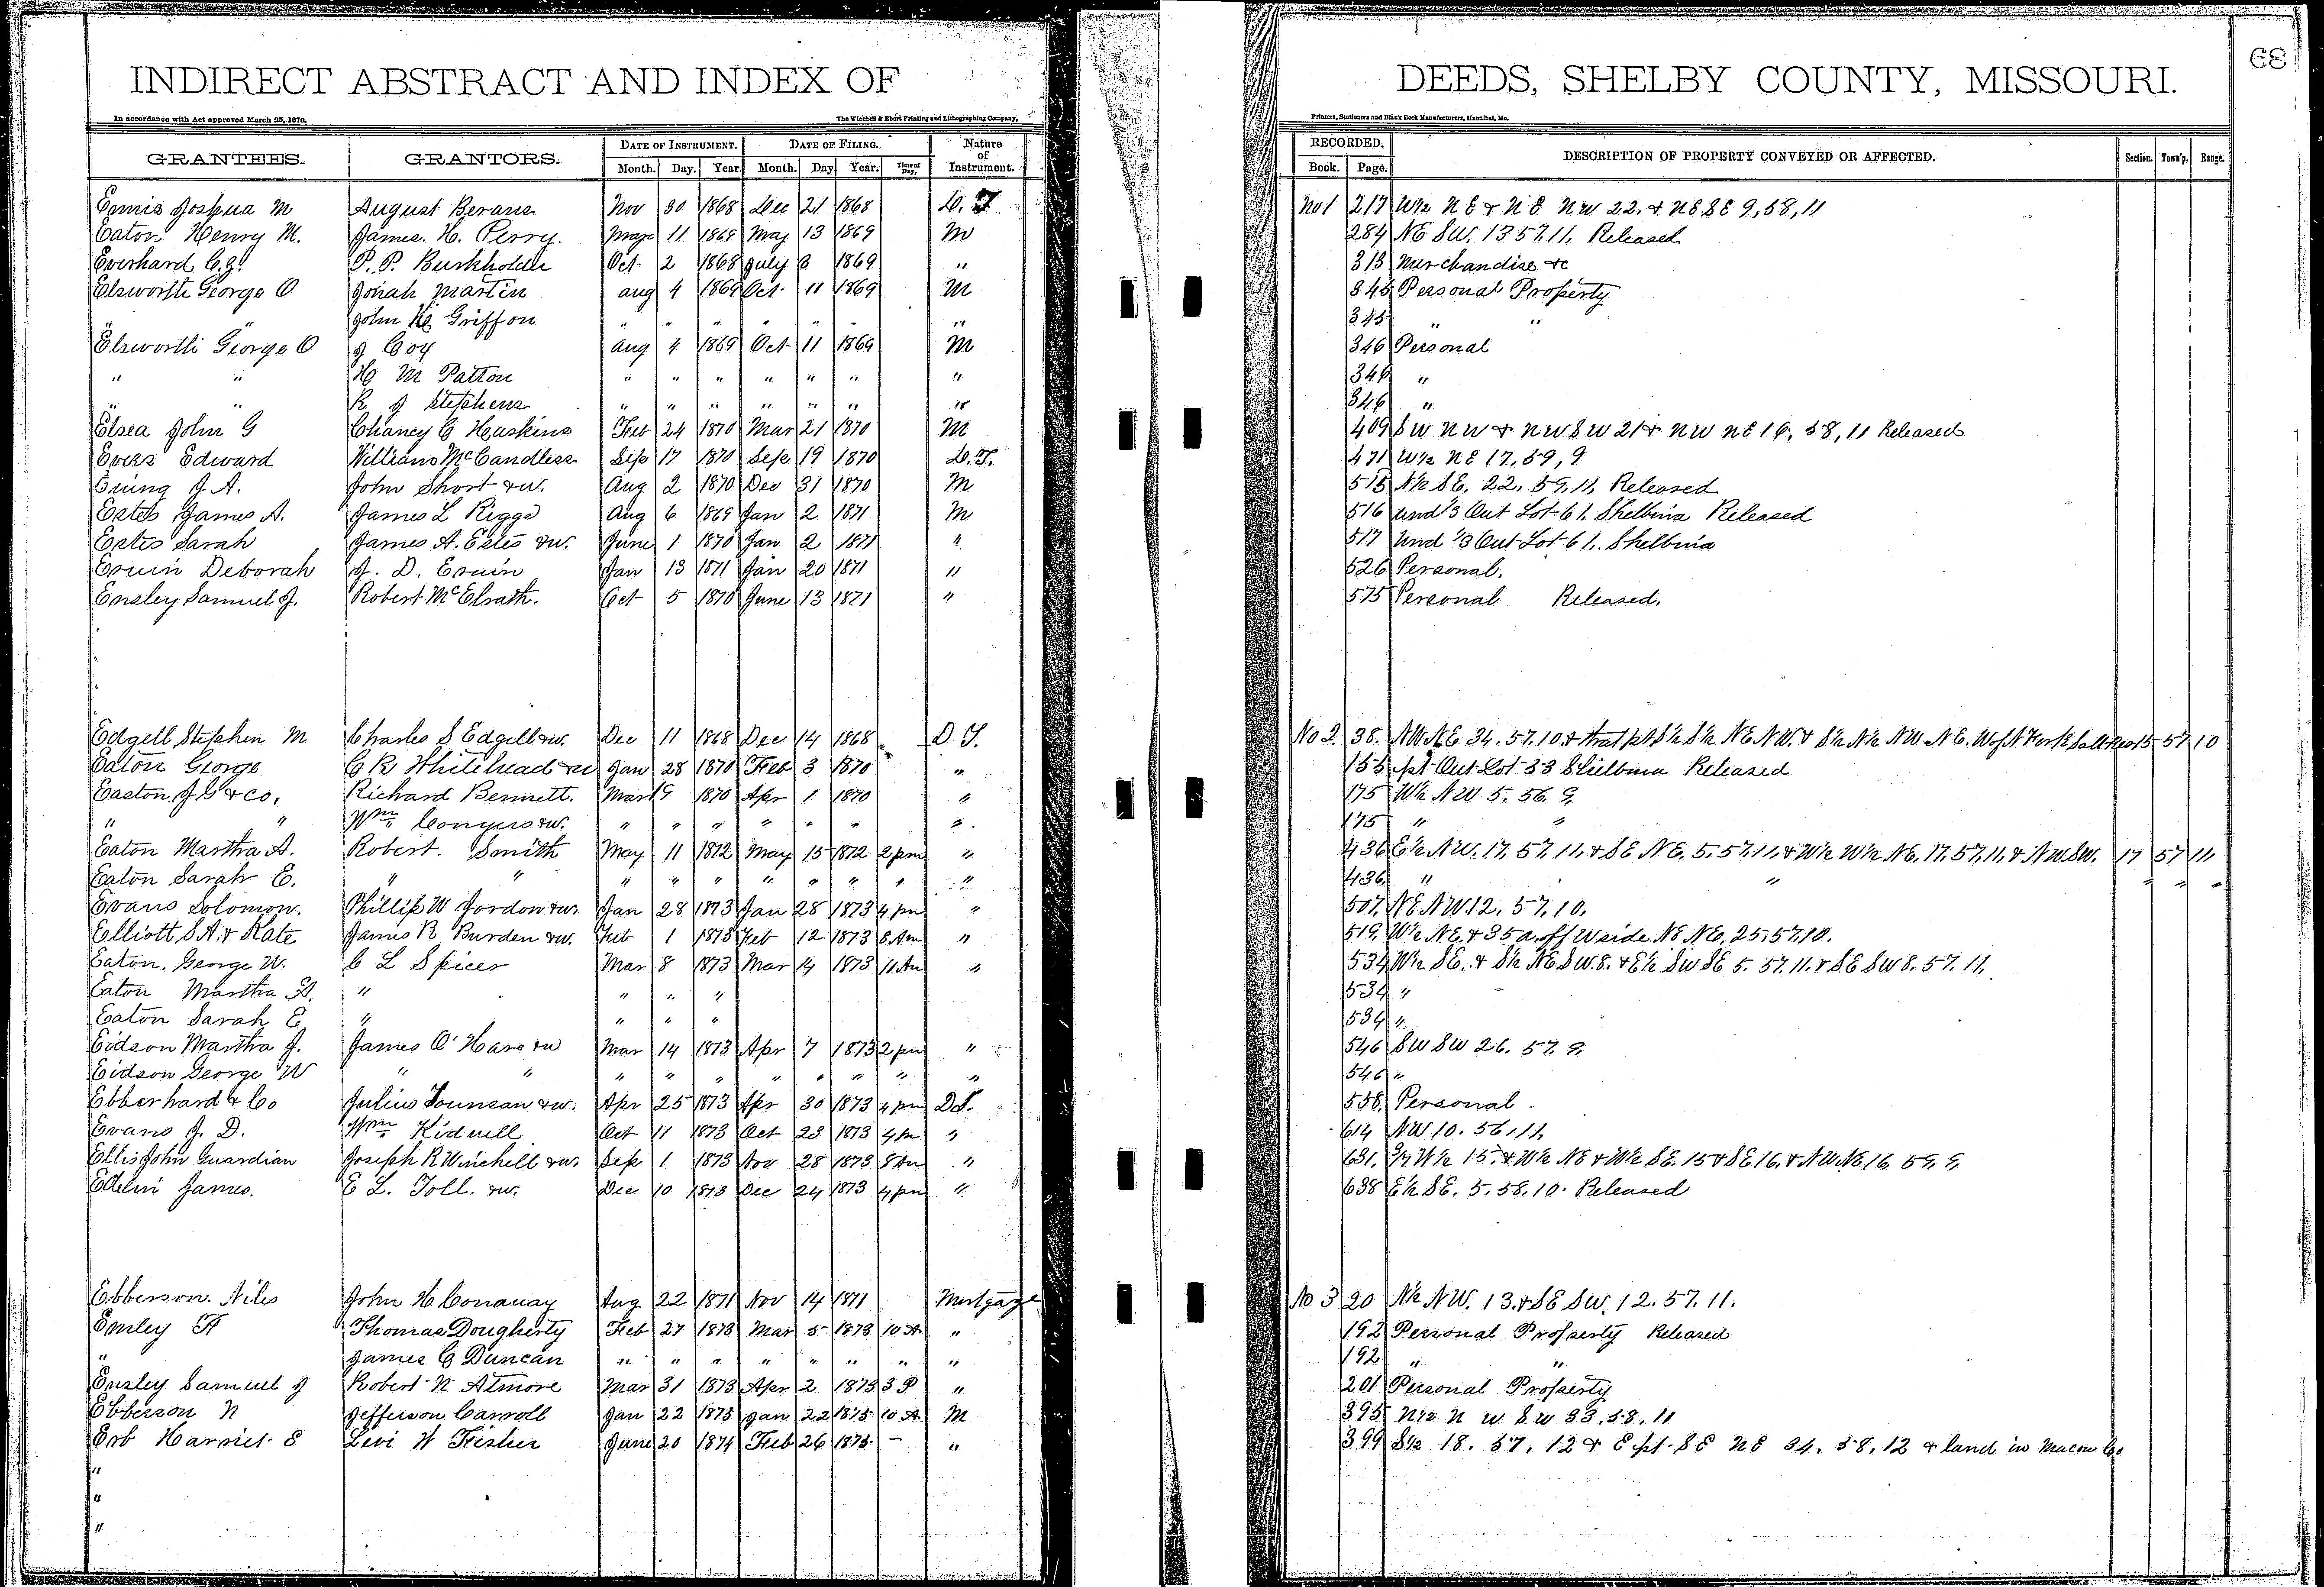 INDIRECT ABSTRACT AND INDEX OF DEEDS, SHELBY COUNTY, MISSOURI.
In accordance with Act approved March 25, 1870. The Winchell & Ebert Printing and Lithographing Company, Printers, Stationers and Blank Book Manufacturers, Hannibal, Mo.
GRANTEES. GRANTORS. DATE OF INSTRUMENT. DATE OF FILING. Nature of Instrument. RECORDED. DESCRIPTION OF PROPERTY CONVEYED OR AFFECTED. Section. Town'p. Range.
Month. Day. Year. Month. Day Year. Time of Day. Book. Page.
Ennis Joshua M August Berans Nov 30 1868 Dec 21 1868 D. T. No 1 217 W½ NE & NE NW 22. & NE SE 9, 58, 11
Eaton Henry M. James. H. Perry. 11 1869 May 13 1869 M 284 NE SW. 13 57. 11. Released
Everhard C. J. P. P. Burkholder Oct. 2 1868 July 8 1869 " 313 Merchandise &c
Elsworth George O Josiah Martin Aug 4 1869 Oct. 11 1869 M 345 Personal Property
" John H Griffon " " " " " " " 345 " "
Elsworth George O J Coy Aug 4 1869 Oct 11 1869 M 346 Personal
" " H M Patton " " " " " " " 346 "
" " R J Stephens " " " " " " " 346 "
Elsea John G Chancy C Haskins Feb 24 1870 Mar 21 1870 M 409 SW NW & NW SW 21 & NW NE 16, 58, 11 Released
Evers Edward William McCandless Sep 17 1870 Sep 19 1870 D. T. 471 W½ NE 17, 59, 9
Ewing J A. John Short &w. Aug 2 1870 Dec 31 1870 M 515 N½ SE. 22. 59. 11, Released
Estes James A. James L Riggs Aug 6 1869 Jan 2 1871 M 516 und ⅓ Out Lot 61. Shelbina Released
Estes Sarah James A. Estes &w. June 1 1870 Jan 2 1871 " 517 Und ⅓ Out Lot 61. Shelbina
Erwin Deborah J. D. Erwin Jan 13 1871 Jan 20 1871 " 526 Personal.
Ensley Samuel J. Robert McElrath. Oct 5 1870 June 13 1871 " 575 Personal Released.
Edgell Stephen M Charles S Edgell &w. Dec 11 1868 Dec 14 1868 D T. No 2. 38. NW NE 34. 57. 10 & that pt S½ S½ NE NW. & S½ N½ NW NE. W of N Fork Salt 15 57 10
Eaton George C R Whitehead Jan 28 1870 Feb 3 1870 " 155 pt Out Lot 33 Shelbina Released
Easton, J G & Co. Richard Bennett. Mar 19 1870 Apr 1 1870 " 175 W½ NW 5. 56. 9.
" " Wm Conyers &w. " " " " " " " 175 " "
Eaton Martha A. Robert. Smith May 11 1872 May 15 1872 2 pm " 436 E½ NW. 17, 57. 11. & SE NE. 5. 57. 11. & W½ W½ NE. 17. 57. 11. & NW SW. 17 57 11
Eaton Sarah E. " " " " " " " " " " 436. " " " " "
Evans Solomon. Phillip W Jordon &w. Jan 28 1873 Jan 28 1873 4 pm " 507, NE NW. 12. 57. 10.
Elliott S A. & Kate James R Burden &w. Feb 1 1873 Feb 12 1873 8 Am " 519, W½ NE. & 35 a. off W side NE NE. 25. 57. 10.
Eaton. George W. C L Spicer Mar 8 1873 Mar 14 1873 11 Am " 534 W½ SE. & S½ NE SW. 8. & E½ SW SE 5. 57. 11. & SE SW 8. 57. 11.
Eaton Martha A. " " " " 534 "
Eaton Sarah E " " " " 534 "
Eidson Martha J. James O'Hare &w Mar 14 1873 Apr 7 1873 2 pm " 546 SW SW 26. 57. 9.
Eidson George W " " " " " " " " " " 546 "
Ebberhard & Co Julius &w. Apr 25 1873 Apr 30 1873 4 pm D T. 558, Personal.
Evans J. D. Wm Kidwell Oct 11 1873 Oct 23 1873 4 pm " 614 NW 10. 56. 11.
Ellis John Guardian Joseph R Winchell &w. Sep 1 1873 Nov 28 1873 8 Am " 631. W½ 15. & W½ NE & W½ SE. 15 & SE 16. & NW NE 16. 59. 9.
Edelin James. E L. Toll. &w. Dec 10 1873 Dec 24 1873 4 pm " 638 E½ SE. 5. 58. 10. Released
Ebberson. Niles John H Conaway Aug 22 1871 Nov 14 1871 Mortgage No 3 20 N½ NW. 13. & SE SW. 12. 57. 11.
Thomas Dougherty Feb 27 1873 Mar 5 1873 10 A " 192 Personal Property Released
" James C Duncan " " " " " " " " 192 " "
Ensley Samuel J Robert N Atmore Mar 31 1873 Apr 2 1873 3 P " 201 Personal Property
Ebberson N Jefferson Carroll Jan 22 1875 Jan 22 1875 10 A M 395 N½ N W SW 33. 58. 11
Erb Harriet E Levi W Fisher June 20 1874 Feb 26 1875 — " 399 S½ 18. 57. 12 & E pt SE NE 34. 58. 12 & land in Macon Co
"
"
"